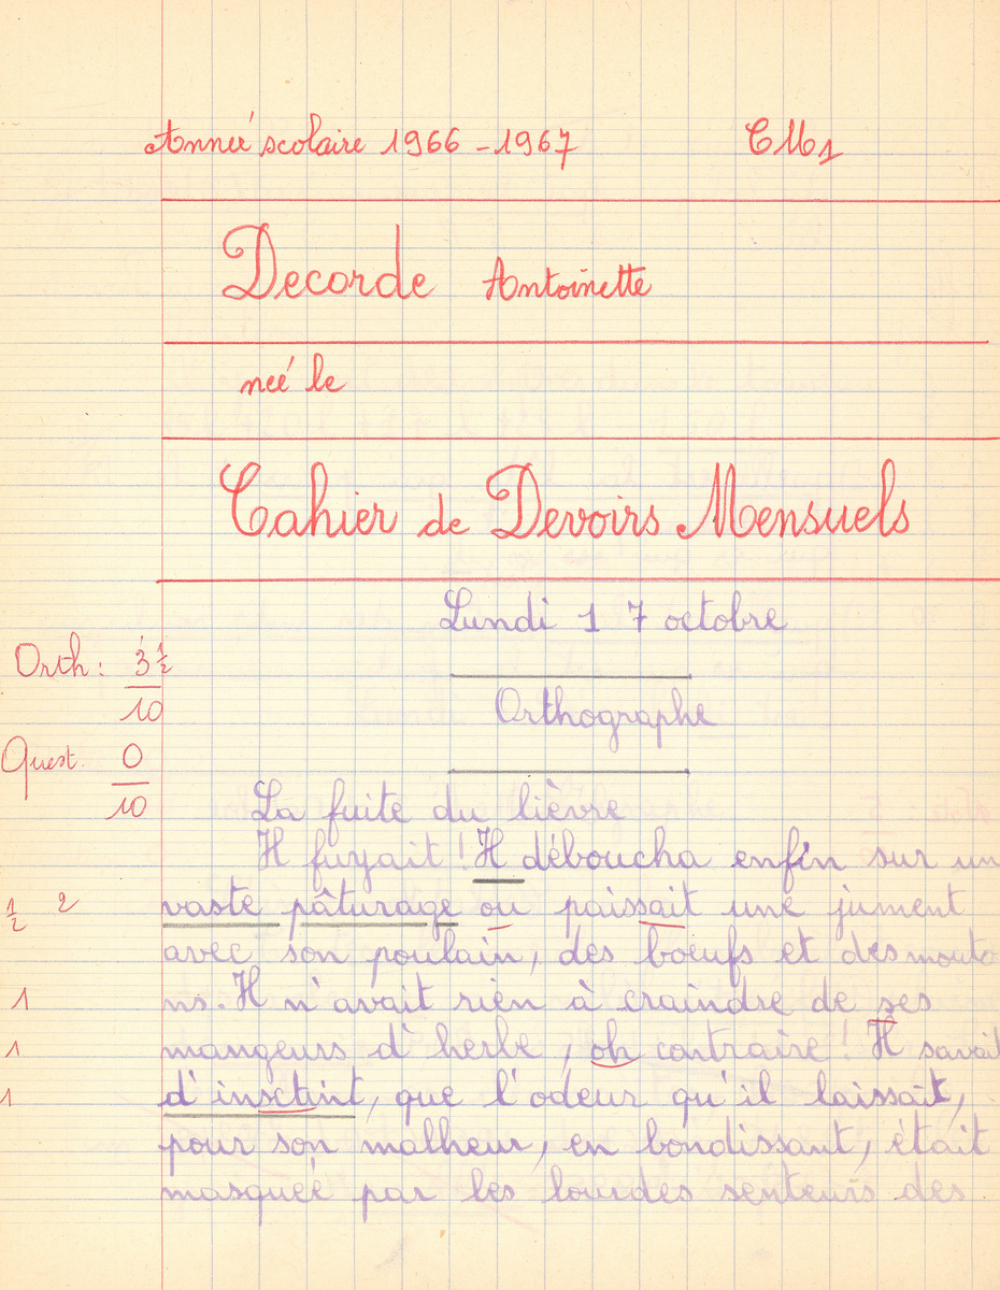 Année scolaire 1966-1967 CM1
Decorde Antoinette
née le
Cahier de Devoirs Mensuels
Lundi 17 octobre
Orth: 3 1/2
10
Orthographe
Quest. 0
10
La fuite du lièvre
Il fuyait! Il déboucha enfin sur un
1/2 2 vaste pâturage ou paissait une jument
avec son poulain, des boeufs et des mouto
1 ns. Il n'avait rien à craindre de ses
1 mangeurs d'herbe, oh contraire! Il savait
1 d'insctint, que l'odeur qu'il laissait,
pour son malheur, en bondissant, était
masquée par les lourdes senteurs des